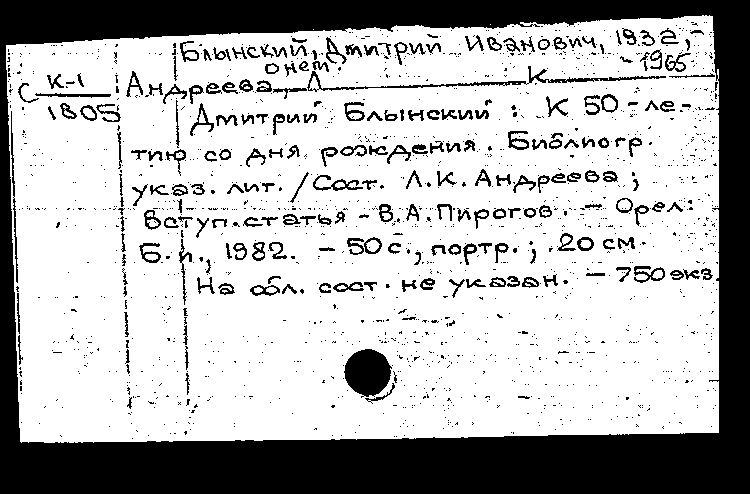 Блынский, Дмитрий Иванович, 1932,-
о нем. - 1965
К-1 Андреева, Л К
С 1805 Дмитрий Блынский : К 50-ле-
тию со дня рождения. Библиогр.
указ. лит. / Сост. Л.К. Андреева ;
Вступ. статья - В.А. Пирогов. - Орел:
Б.и., 1982. - 50 с., портр. ; 20 см.
На обл. сост. не указан. - 750 экз.